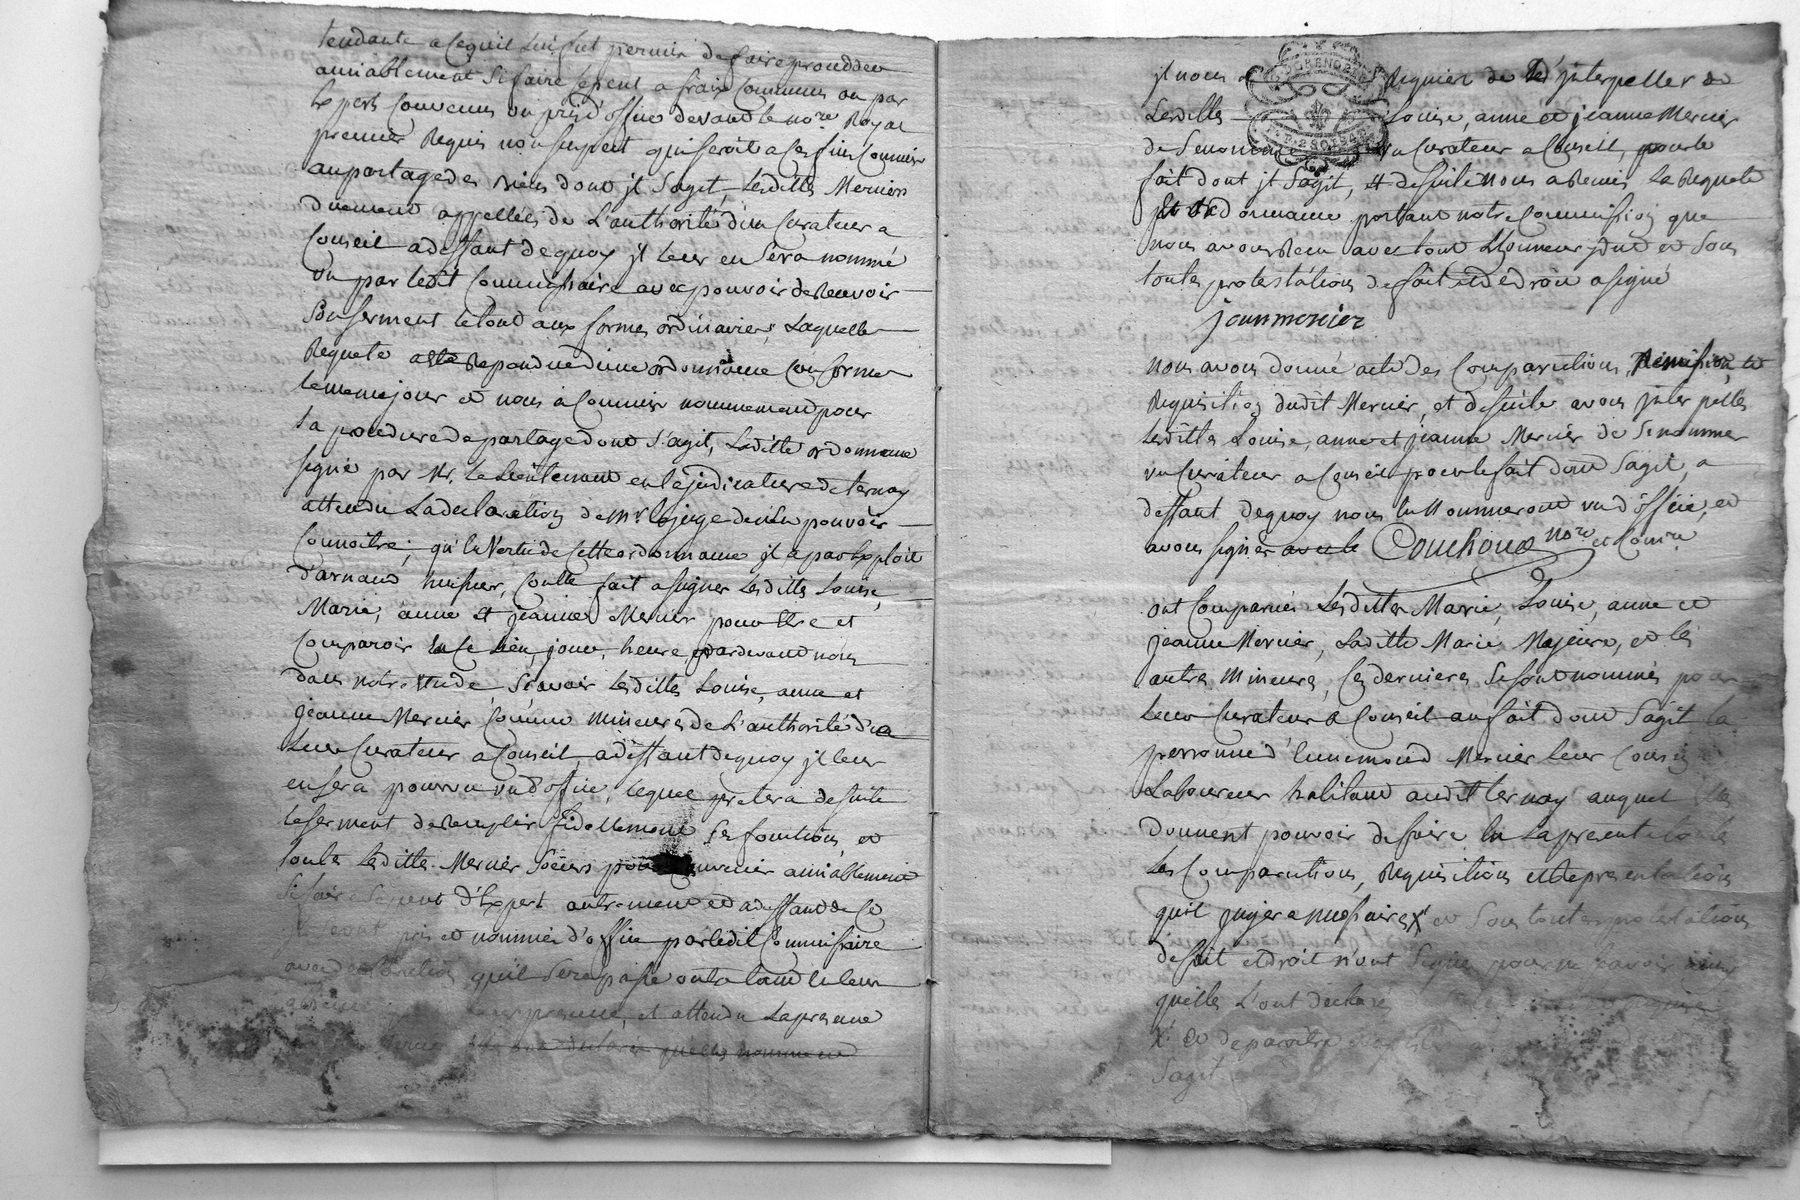 tendante a ce quil lui fut permis de faire proceder
amiablement si faire se peut a frais communs ou par
Experts convenus ou pris d'office devant le no.re Royal
premier Requis non suspect qui seroit a ces fins Commis
au partage des biens dont jl S'agit, Lesdittes Mercier
duement appellées de L'authorité d'un Curateur a
Conseil a deffaut de quoy jl leur en Sera nommé
un par ledit Commissaire avec pouvoir de Recevoir
Son serment le tout aux formes ordinaires, Laquelle
Requete a eté Repondue d'une ordonnance Conforme
le meme jour et nous a Commis nommement pour
la procedure de partage dont S'agit, Laditte ordonnance
signé par Mr. Le Lieutenant en la judicature de ternay
attendu La declaration de Mr. Lejuge de n'en pouvoir
Connoitre; qu'en Vertu de Cette ordonnance jl a par Exploit
d'arnaud huissier, Controllé fait assigner Lesdittes Louise,
Marie, anne et jeanne Mercier pour Etre et
Comparoir En Ce Lieu, jour, heure, pardevant nous
dans notre Etude Scavoir Lesdittes Louise, anne et
jeanne Mercier Comme mineures de L'authorité d'un
Leur Curateur a Conseil, a deffaut de quoy jl leur
en sera pourvu un d'office, lequel pretera de suite
le serment de Remplir fidellement Ses fonctions, et
toutes Lesdittes Mercier Soeurs pour Convenir amiablement
Si faire Se peut d'Expert autrement et a deffaut de Ce
Seront pris et nommés d'office par ledit Commissaire
avec declaration qu'il Sera passé outre tant en leur
absence presence, et attendu La presence
declarer quelles nomment
jl nous a Requier de Les jnterpeller
Lesdittes Louise, anne et jeanne Mercier
de Se nommer un Curateur a Conseil, pour le
fait dont jl S'agit, et de suite nous a Remis La Requete
et ordonnance portant notre Commission que
nous avons Recu avec tout L'honneur du et Sous
toutes protestations de fait et de droit a signé
jean mercier
nous avons donné acte des Comparutions, Remission, et
Requisition dudit Mercier, et de suite avons jnterpellés
Lesdittes Louise, anne et jeanne Mercier de Se nommer
un Curateur a Conseil pour le fait dont S'agit, a
deffaut de quoy nous en nommerons un d'office, et
avons signés Couchoud no.re et Com.re
ont Comparües Lesdittes Marie, Louise, anne et
jeanne Mercier, Laditte Marie Majeure, et les
autres Mineures, Ces dernieres Se sont nommés pour
Leur Curateur a Conseil au fait dont S'agit la
personne d'Ennemond Mercier leur Cousin
Laboureur habitant audit ternay auquel Elles
donnent pouvoir de faire En La presente toutes
Les Comparutions, Requisitions et Representations
qu'il jugera necessaires X et Sous toutes protestations
de fait et droit n'ont Signés pour ne savoir ainsy
quelles L'ont declaré
X et de paroitre
S'agit